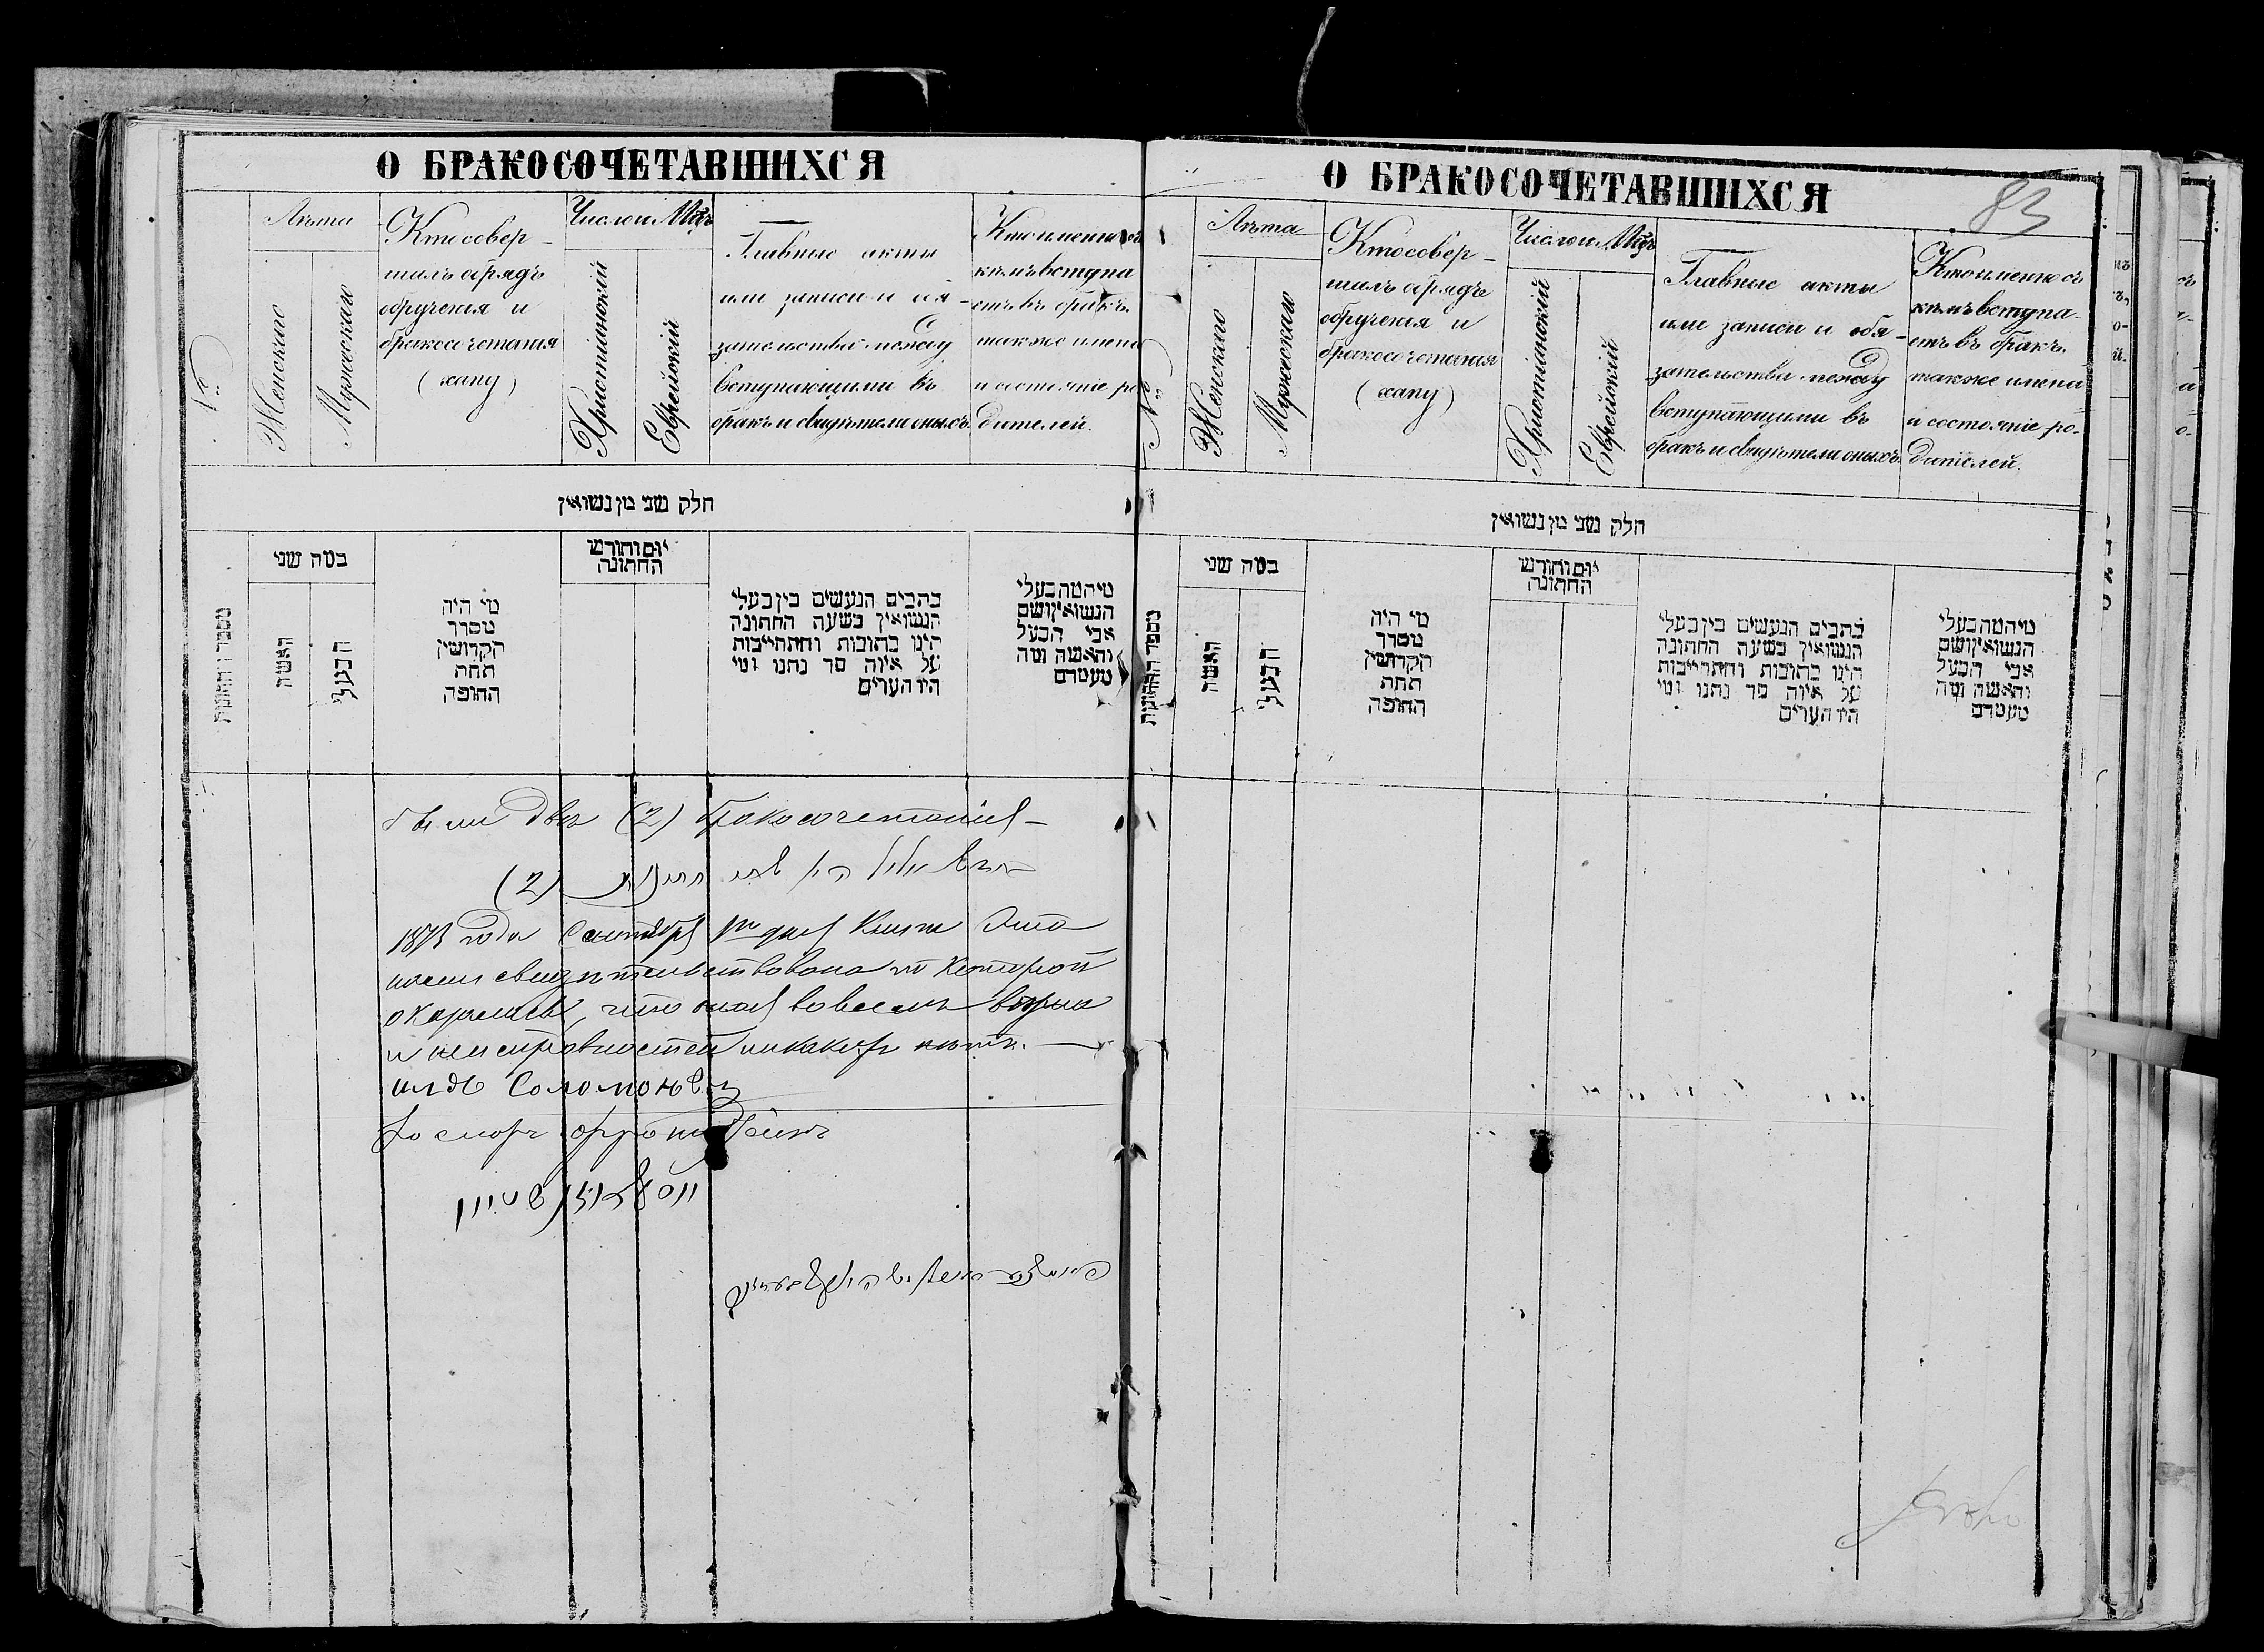 О БРАКОСОЧЕТАВШИХСЯ
№
Лѣта
Женскаго
Мужескаго
Кто совер-
шалъ обрядъ
обрученія и
бракосочетанія
(хапу)
Число и Мѣсяцъ
Христіанскій
Еврейскій
Главные акты
или записи и обя-
зательства между
вступающими въ
бракъ и свидѣтели оныхъ
Кто именно съ
кѣмъ вступа
етъ въ бракъ.
также имена
и состояніе ро
дителей.
חלק שני מן נשואין
במה שני
האשה
הבעל
מי היה
מסדר
הקדושין
תחת
החופה
יום וחודש
החתונה
כתבים הנעשים בין בעלי
הנשואין בשעה החתונה
הינו כתובות והתחייבות
על איזה סך נתנו ומי
היו העדים
מי המה בעלי
הנשואין ושם
אבי הבעל
והאשה ומה
מעמדם
были два (2) бракосочетанія
שתי (2)
1873 года Сентября дня Книга эта
нами свидѣтельствована по которой
оказалось, что оная во всемъ вѣрна
и неисправностей никакихъ нѣтъ.
Соломонъ
О БРАКОСОЧЕТАВШИХСЯ
83
№
Лѣта
Женскаго
Мужескаго
Кто совер-
шалъ обрядъ
обрученія и
бракосочетанія
(хапу)
Число и Мѣсяцъ
Христіанскій
Еврейскій
Главные акты
или записи и обя-
зательства между
вступающими въ
бракъ и свидѣтели оныхъ
Кто именно съ
кѣмъ вступа-
етъ въ бракъ.
также имена
и состояніе ро-
дителей.
חלק שני מן נשואין
במה שני
האשה
הבעל
מי היה
מסדר
הקדושין
תחת
החופה
יום וחודש
החתונה
כתבים הנעשים בין בעלי
הנשואין בשעה החתונה
הינו כתובות והתחייבות
על איזה סך נתנו ומי
היו העדים
מי המה בעלי
הנשואין ושם
אבי הבעל
והאשה ומה
מעמדם